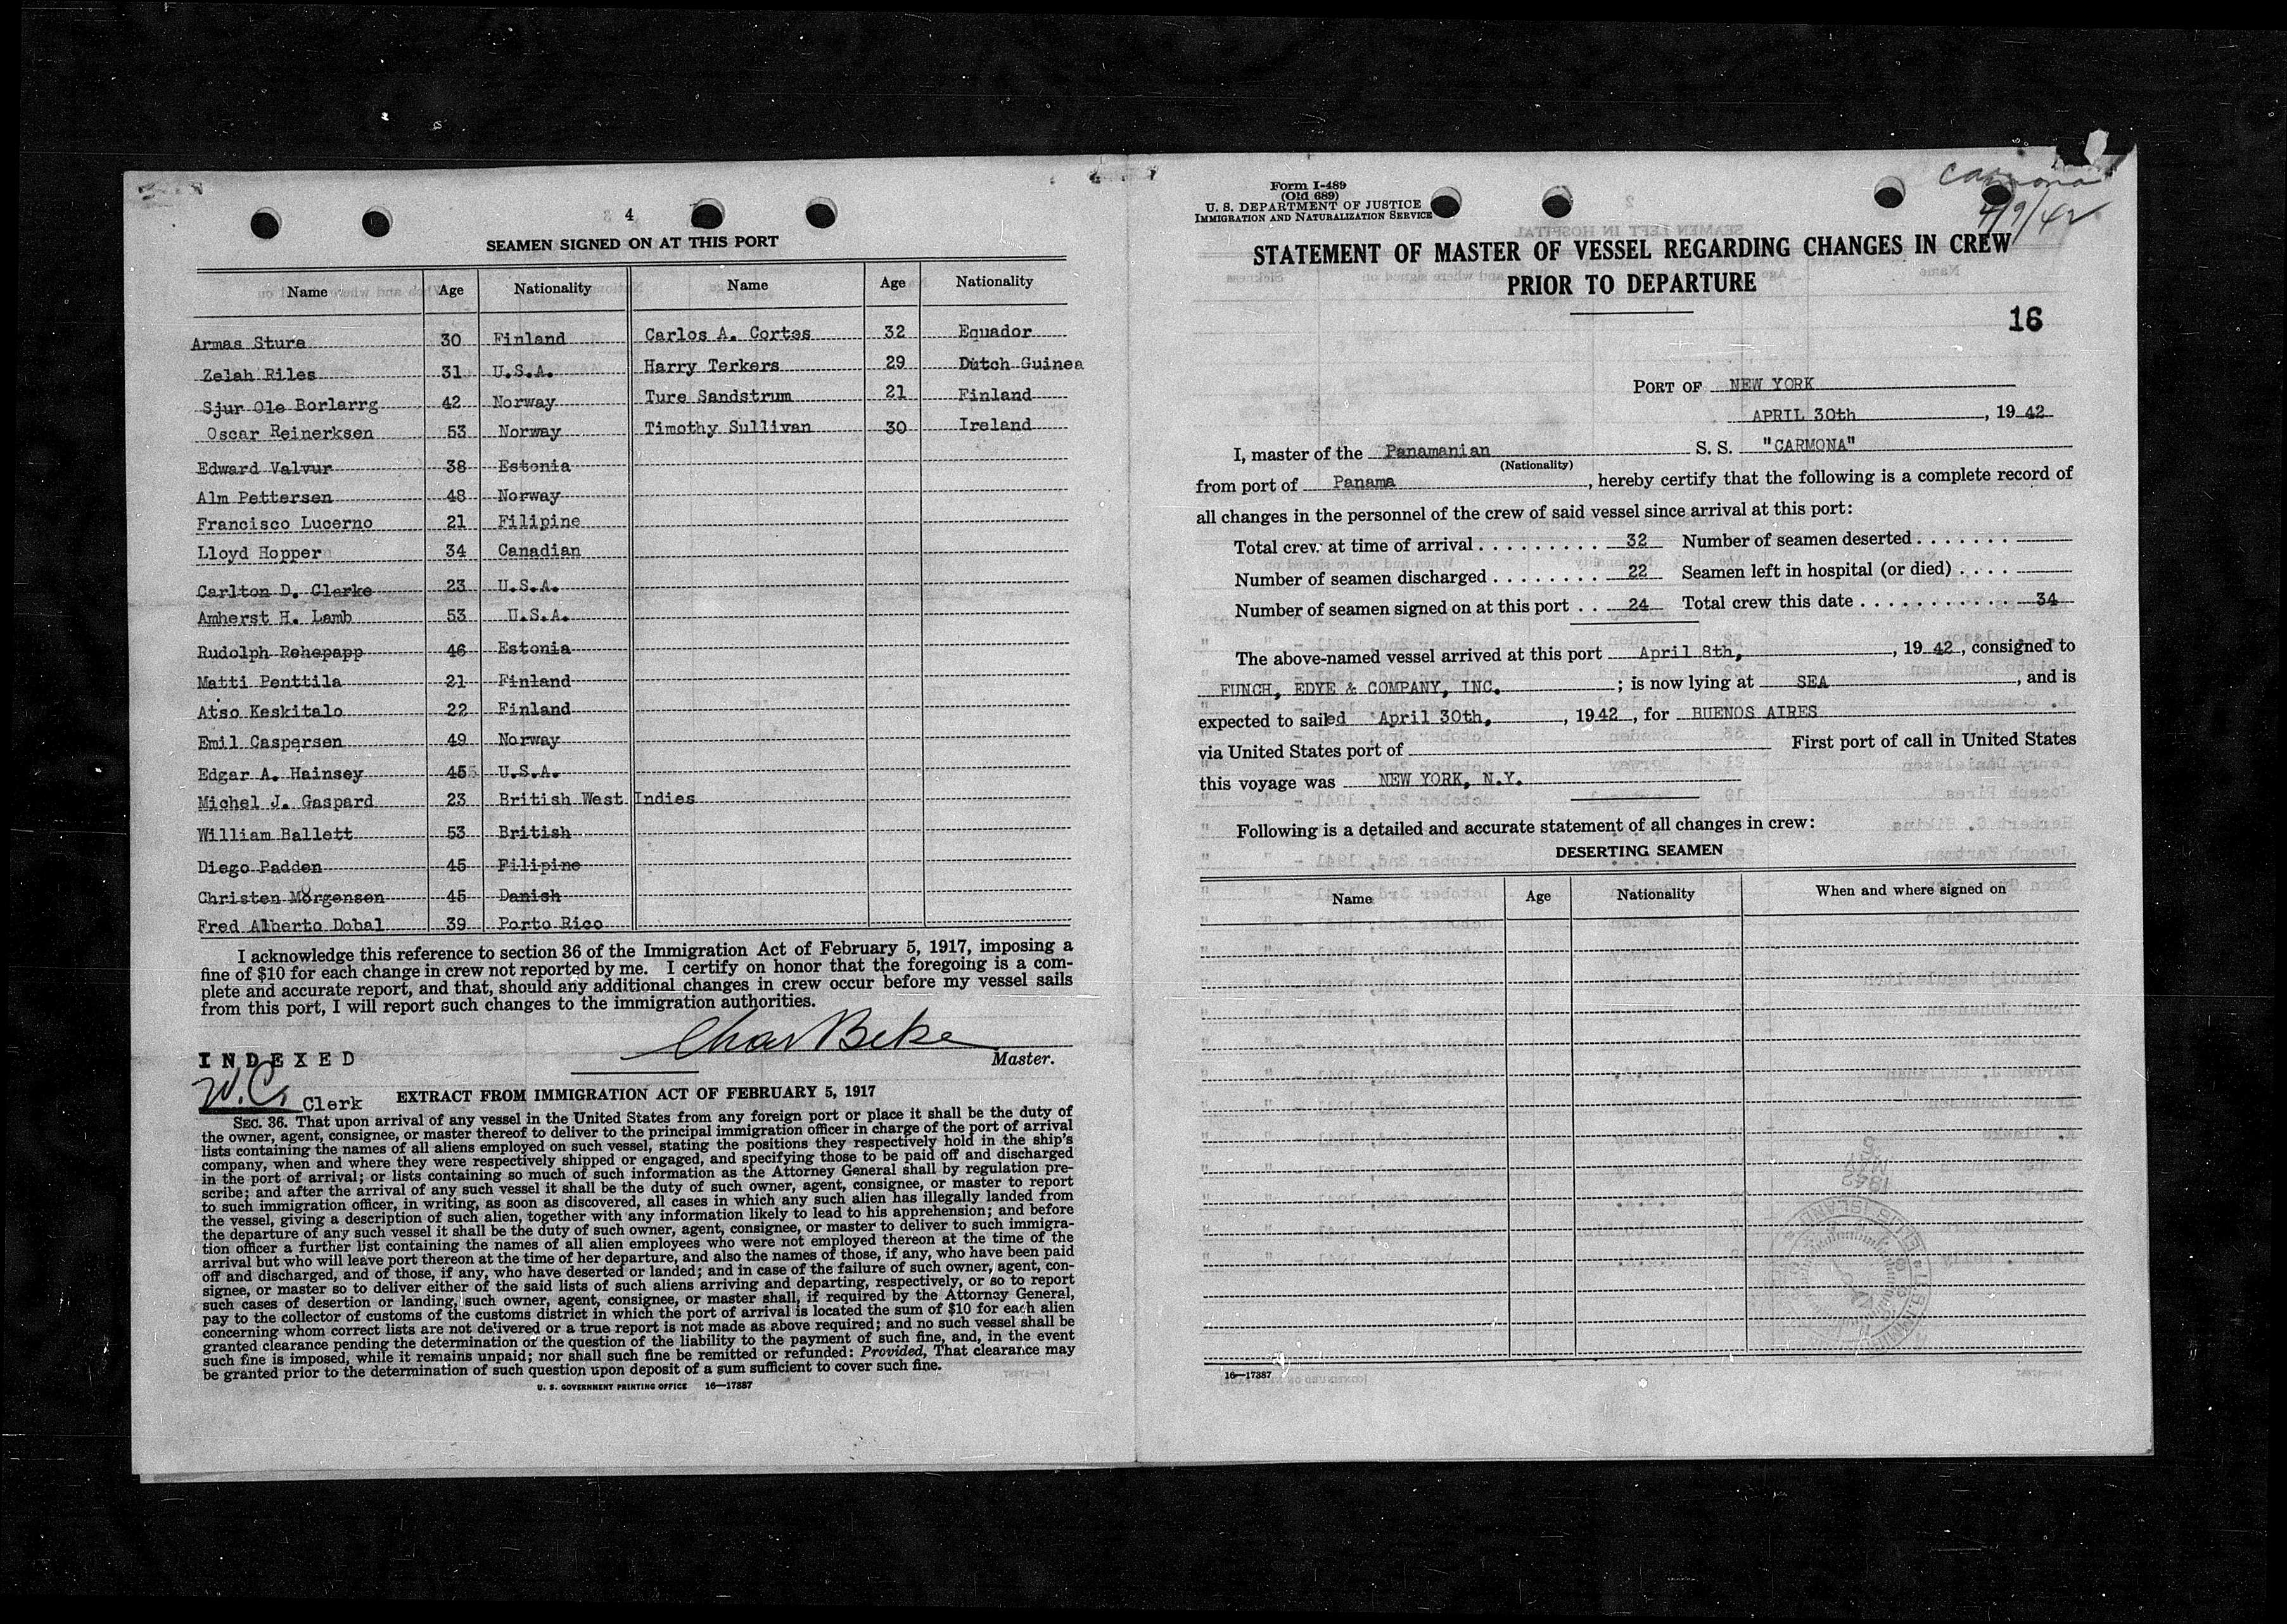 4
SEAMEN SIGNED ON AT THIS PORT
Name Age Nationality Name Age Nationality
Armas Sture 30 Finland Carlos A. Cortes 32 Equador
Zelah Riles 31 U.S.A. Harry Terkers 29 Dutch Guinea
Sjur Ole Borlarrg 42 Norway Ture Sandstrum 21 Finland
Oscar Reinerksen 53 Norway Timothy Sullivan 30 Ireland
Edward Valvur 38 Estonia
Alm Pettersen 48 Norway
Francisco Lucerno 21 Filipine
Lloyd Hopper 34 Canadian
Carlton D. Clarke 23 U.S.A.
Amherst H. Lamb 53 U.S.A.
Rudolph Rehepapp 46 Estonia
Matti Penttila 21 Finland
Atso Keskitalo 22 Finland
Emil Caspersen 49 Norway
Edgar A. Hainsey 45 U.S.A.
Michel J. Gaspard 23 British West Indies
William Ballett 53 British
Diego Padden 45 Filipine
Christen Morgensen 45 Danish
Fred Alberto Dobal 39 Porto Rico
I acknowledge this reference to section 36 of the Immigration Act of February 5, 1917, imposing a
fine of $10 for each change in crew not reported by me. I certify on honor that the foregoing is a com-
plete and accurate report, and that, should any additional changes in crew occur before my vessel sails
from this port, I will report such changes to the immigration authorities.
Master.
INDEXED
W.C. Clerk
EXTRACT FROM IMMIGRATION ACT OF FEBRUARY 5, 1917
SEC. 36. That upon arrival of any vessel in the United States from any foreign port or place it shall be the duty of
the owner, agent, consignee, or master thereof to deliver to the principal immigration officer in charge of the port of arrival
lists containing the names of all aliens employed on such vessel, stating the positions they respectively hold in the ship's
company, when and where they were respectively shipped or engaged, and specifying those to be paid off and discharged
in the port of arrival; or lists containing so much of such information as the Attorney General shall by regulation pre-
scribe; and after the arrival of any such vessel it shall be the duty of such owner, agent, consignee, or master to report
to such immigration officer, in writing, as soon as discovered, all cases in which any such alien has illegally landed from
the vessel, giving a description of such alien, together with any information likely to lead to his apprehension; and before
the departure of any such vessel it shall be the duty of such owner, agent, consignee, or master to deliver to such immigra-
tion officer a further list containing the names of all alien employees who were not employed thereon at the time of the
arrival but who will leave port thereon at the time of her departure, and also the names of those, if any, who have been paid
off and discharged, and of those, if any, who have deserted or landed; and in case of the failure of such owner, agent, con-
signee, or master so to deliver either of the said lists of such aliens arriving and departing, respectively, or so to report
such cases of desertion or landing, such owner, agent, consignee, or master shall, if required by the Attorney General,
pay to the collector of customs of the customs district in which the port of arrival is located the sum of $10 for each alien
concerning whom correct lists are not delivered or a true report is not made as above required; and no such vessel shall be
granted clearance pending the determination of the question of the liability to the payment of such fine, and, in the event
such fine is imposed, while it remains unpaid; nor shall such fine be remitted or refunded: Provided, That clearance may
be granted prior to the determination of such question upon deposit of a sum sufficient to cover such fine.
U. S. GOVERNMENT PRINTING OFFICE 16—17387
Form I-489
(Old 689)
U. S. DEPARTMENT OF JUSTICE
IMMIGRATION AND NATURALIZATION SERVICE
Carmona
4/9/42
STATEMENT OF MASTER OF VESSEL REGARDING CHANGES IN CREW
PRIOR TO DEPARTURE
16
PORT OF NEW YORK
APRIL 30th, 1942
I, master of the Panamanian S. S. "CARMONA"
(Nationality)
from port of Panama, hereby certify that the following is a complete record of
all changes in the personnel of the crew of said vessel since arrival at this port:
Total crew at time of arrival . . . . . . . . . 32 Number of seamen deserted . . . . . . .
Number of seamen discharged . . . . . . . . 22 Seamen left in hospital (or died) . . . .
Number of seamen signed on at this port . . 24 Total crew this date . . . . . . . . . . . . 34
The above-named vessel arrived at this port April 8th, , 1942, consigned to
FUNCH, EDYE & COMPANY, INC. ; is now lying at SEA , and is
expected to sailed April 30th, , 1942, for BUENOS AIRES
via United States port of First port of call in United States
this voyage was NEW YORK, N.Y.
Following is a detailed and accurate statement of all changes in crew:
DESERTING SEAMEN
Name Age Nationality When and where signed on
16—17387